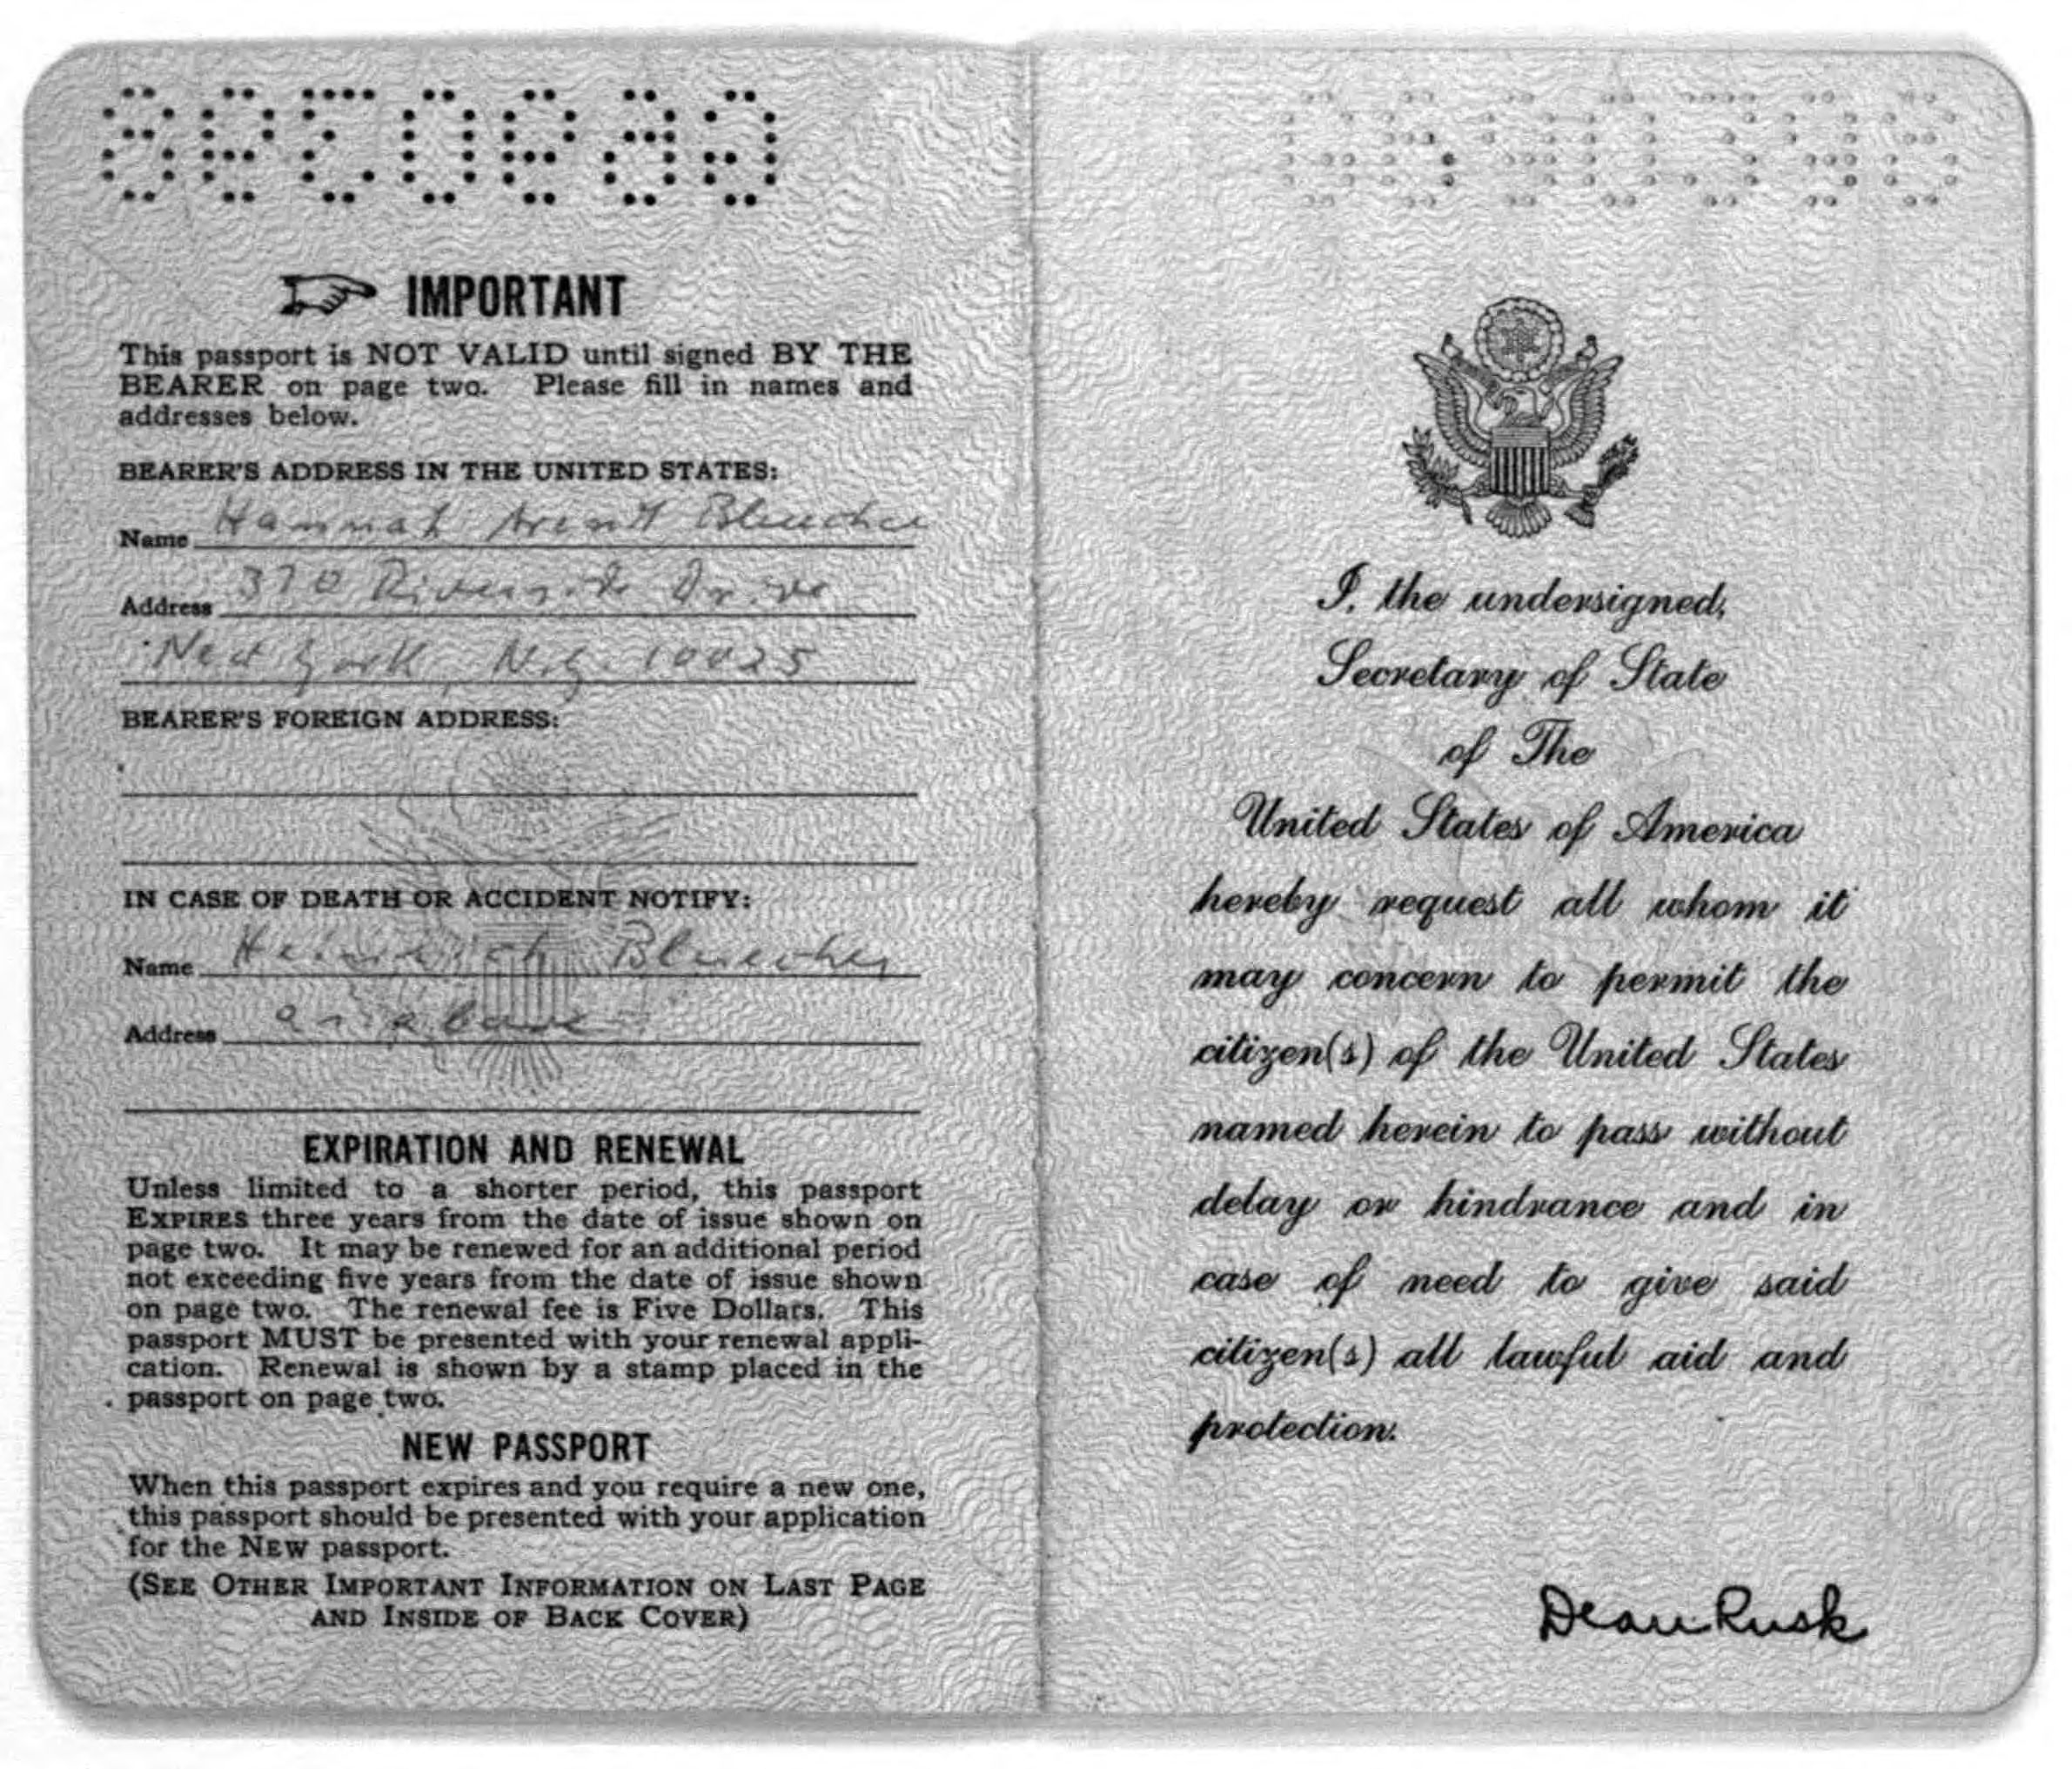 IMPORTANT
This passport is NOT VALID until signed BY THE
BEARER on page two. Please fill in names and
addresses below.
BEARER'S ADDRESS IN THE UNITED STATES:
Name Hannah Arendt Bluecher
Address 370 Riverside Drive
New York, N.Y. 10025
BEARER'S FOREIGN ADDRESS:
IN CASE OF DEATH OR ACCIDENT NOTIFY:
Name Heinrich Bluecher
Address as above
EXPIRATION AND RENEWAL
Unless limited to a shorter period, this passport
EXPIRES three years from the date of issue shown on
page two. It may be renewed for an additional period
not exceeding five years from the date of issue shown
on page two. The renewal fee is Five Dollars. This
passport MUST be presented with your renewal appli-
cation. Renewal is shown by a stamp placed in the
passport on page two.
NEW PASSPORT
When this passport expires and you require a new one,
this passport should be presented with your application
for the NEW passport.
(SEE OTHER IMPORTANT INFORMATION ON LAST PAGE
AND INSIDE OF BACK COVER)
I, the undersigned,
Secretary of State
of The
United States of America
hereby request all whom it
may concern to permit the
citizen(s) of the United States
named herein to pass without
delay or hindrance and in
case of need to give said
citizen(s) all lawful aid and
protection.
Dean Rusk